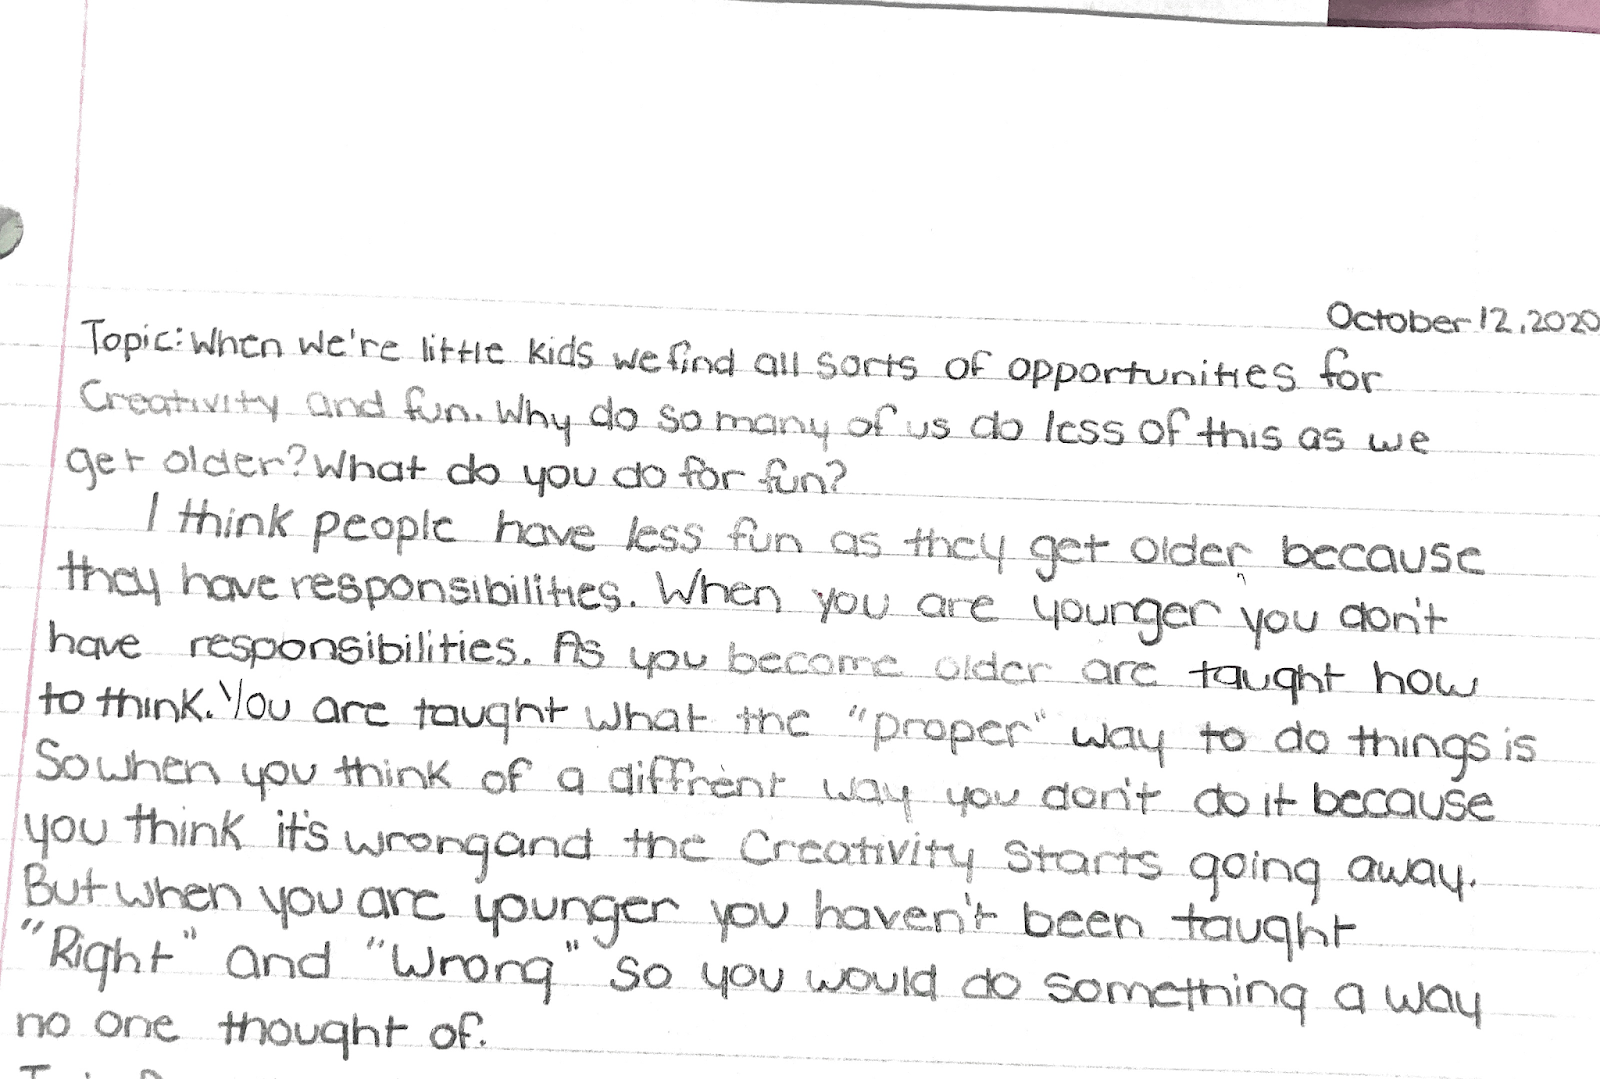 October 12, 2020
Topic: When we're little kids we find all sorts of opportunities for
Creativity and fun. Why do so many of us do less of this as we
get older? What do you do for fun?
I think people have less fun as they get older because
they have responsibilities. When you are younger you don't
have responsibilities. As you become older are taught how
to think. You are taught what the "proper" way to do things is
So when you think of a diffrent way you don't do it because
you think it's wrong and the Creativity starts going away.
But when you are younger you haven't been taught
"Right" and "Wrong" so you would do something a way
no one thought of.